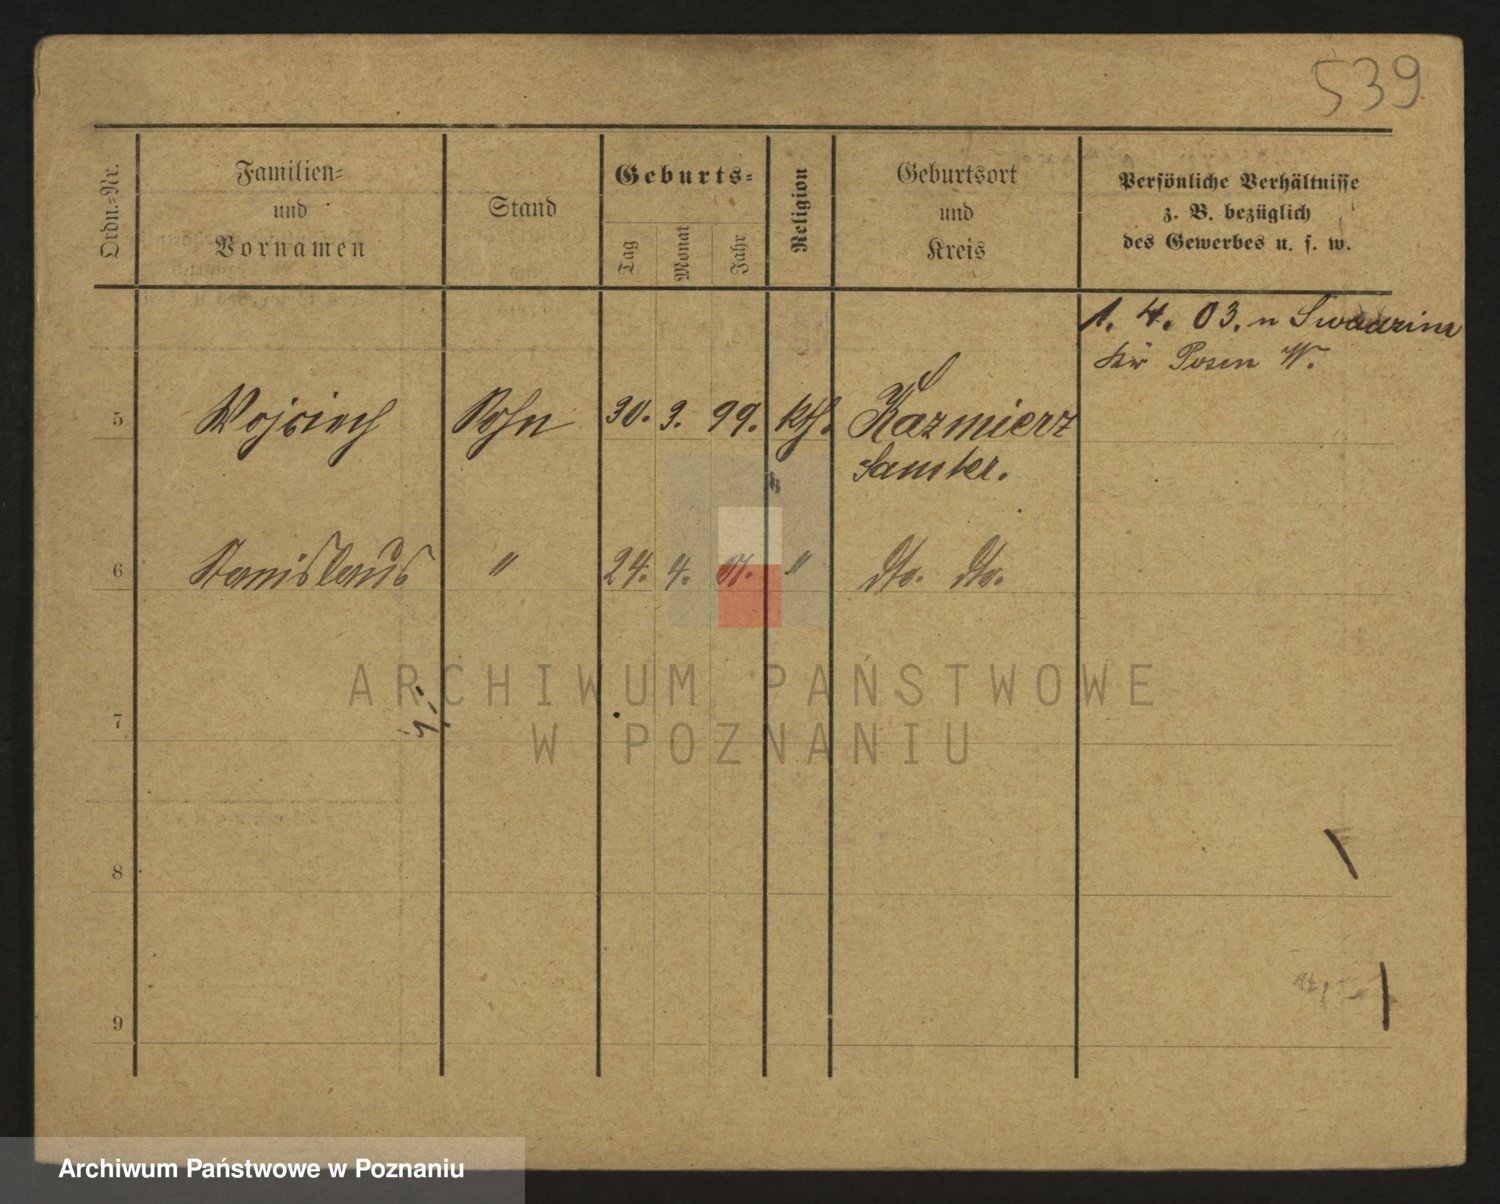 539
Ordn.-Nr.
Familien-
und
Vornamen
Stand
Geburts-
Tag
Monat
Jahr
Religion
Geburtsort
und
Kreis
Persönliche Verhältnisse
z. B. bezüglich
des Gewerbes u. s. w.
1. 4. 03. n
Kr Posen W.
5 Wojciech Sohn 30. 3. 99. kth. Kazmierz
Samter.
6 Stanislaus " 24. 4. 01. " dto. dto.
7
8
9
ARCHIWUM PAŃSTWOWE
W POZNANIU
Archiwum Państwowe w Poznaniu